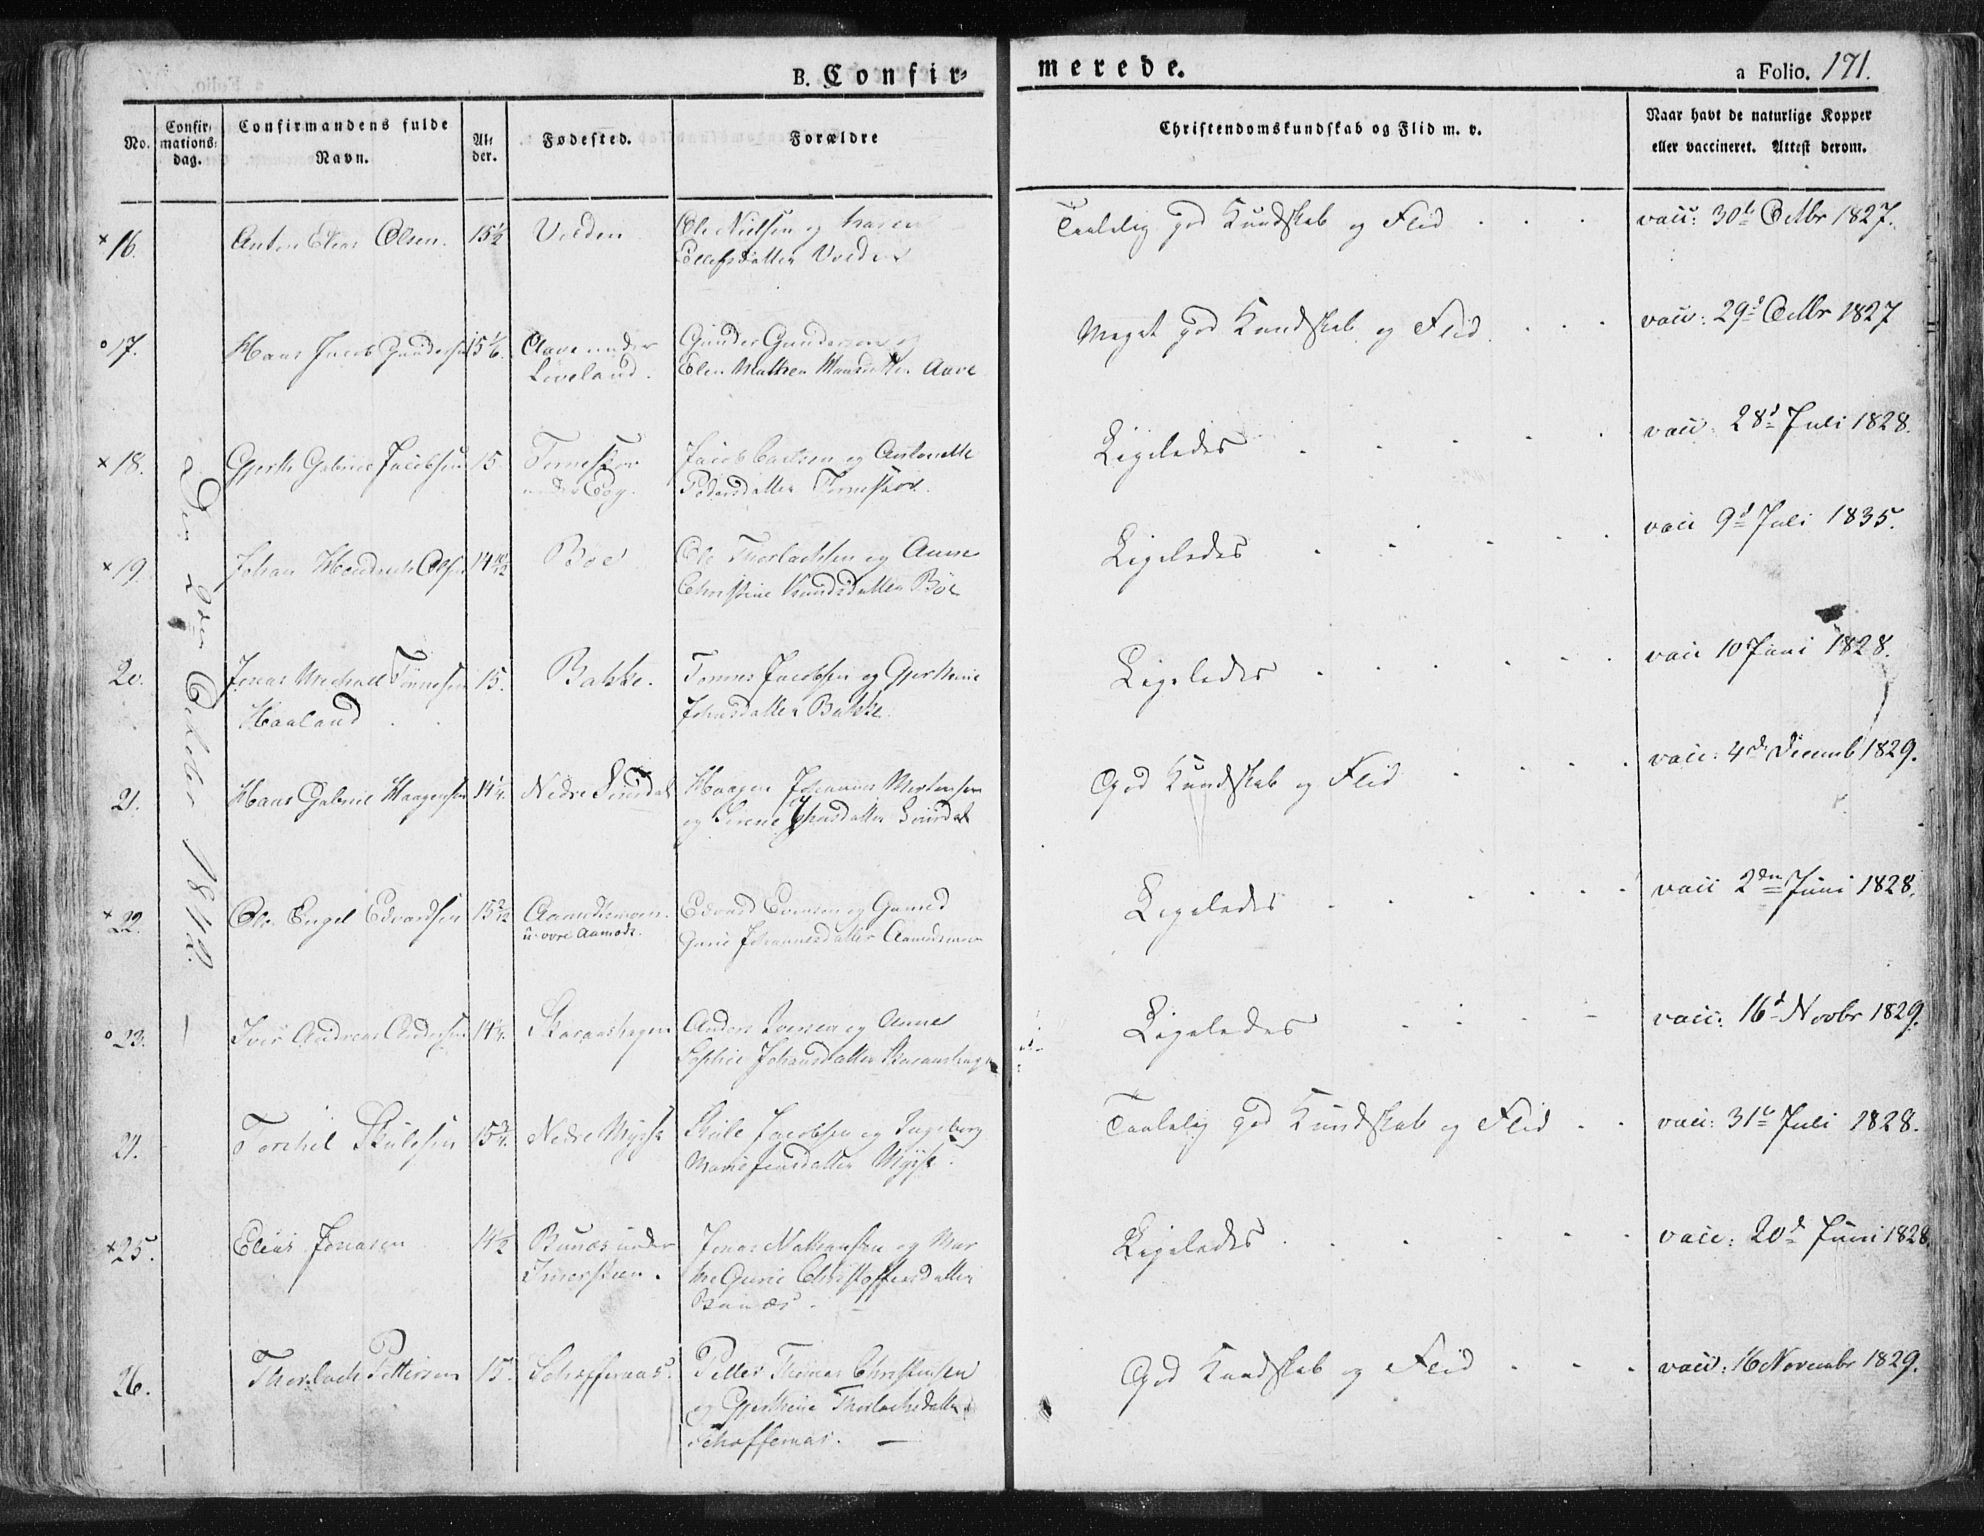 B. Confir-
merede.
a Folio. 171.
No.
Confir-
mations-
dag.
Confirmandens fulde
Navn.
Al-
der.
Fødested.
Forældre
Christendomskundskab og Flid m. v.
Naar havt de naturlige Kopper
eller vaccineret. Attest derom.
Den 2den October 1842. —
× 16.
Anton Elias Olsen.
15½
Ole Nielsen og Karen
Taalelig god Kundskab og Flid . . .
vacc: 30te Octbr 1827.
° 17.
Hans Jacob Gundersen
15 1/6.
Aave under
Leveland.
Gunder Gundersen og
Elen Malhea Hansdatter Aave
Meget god Kundskab og Flid . . .
vacc: 29d Octbr 1827
× 18.
Gjerth Gabriel Jacobsen
15.
Jacob Carlsen og Antonette
Pedersdatter
Ligeledes . . . . .
vacc. 28d Juli 1828.
× 19
Johan Hendrich Olsen
14 11/12
Böe
Ole Thorlachsen og Anne
Christine Knudsdatter Böe
Ligeledes . . . . .
vacc 9d Juli 1835.
20.
Jonas Michael Tønnesen
Haaland . .
15.
Bakke.
Tønnes Jacobsen og Gjerthine
Johnsdatter Bakke.
Ligeledes . . . . .
vacc 10 Juni 1828.
21.
Hans Gabriel Haagensen
14¼.
Nedre Sirdal
Haagen Johannes Mortensen
og Serene
Sirdal
God Kundskab og Flid . . . .
vacc: 4de Decemb 1829.
× 22.
Ole Engel Edvardsen
u. övre Aamodt.
Edvard Evensen og Gunild
Gurie Johannesdatter
Ligeledes . . . . .
vacc 2den Juni 1828.
° 23.
Iver Andreas Andersen
14¼.
Skaraashagen
Anders Iversen og Anne
Sophie Johansdatter Skaraashagen
Ligeledes . . . -
vacc: 16d Novbr 1829.
24.
Torchel Skulesen
15¾.
Nedre Mysse
Skule Jacobsen og Ingeborg
Marie Jensdatter Mysse.
Taalelig god Kundskab og Flid . .
vacc: 31te Juli 1828.
× 25.
Elias Jonasen
14½
Bunæs under
Jonas Nathansen og Mar
the Gurie Christoffersdatter
Bunæs.
Ligeledes . . . . .
vacc: 20d Juni 1828.
26.
Thorlach Pettersen
15.
Petter Thomas Christensen
og Gjerthine Thorlachsdatter
God Kundskab og Flid . . .
vacc: 16 Novembr 1829.